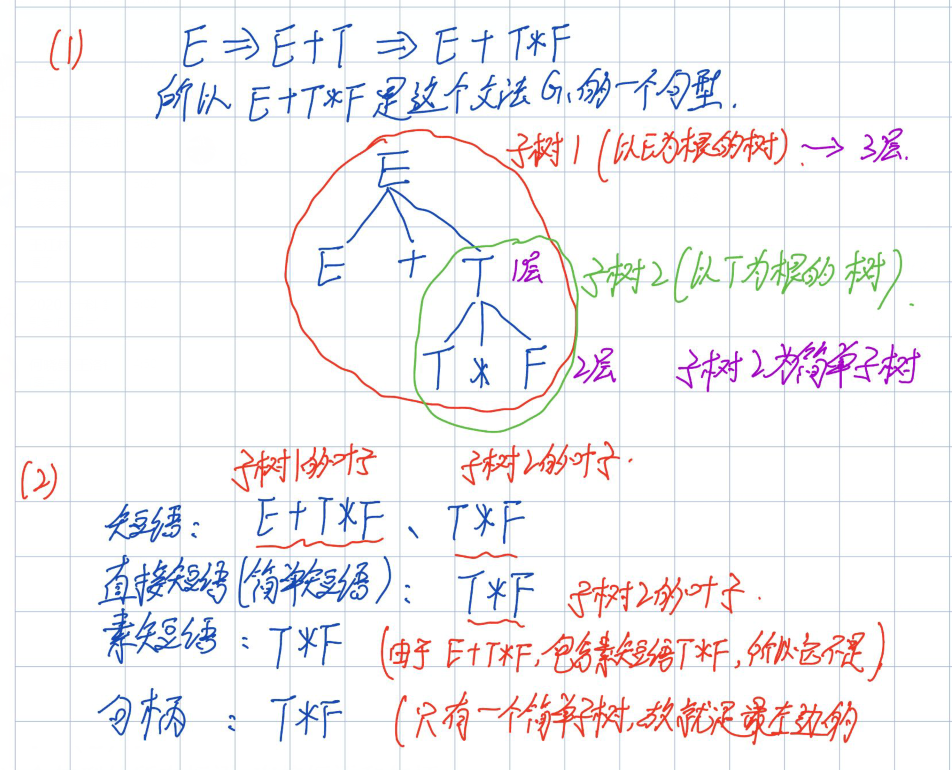 (1) E ⇒ E+T ⇒ E+T*F
所以 E+T*F是这个文法G₁的一个句型.
子树1 (以E为根的树). → 3层.
E
E + T 1层 子树2(以T为根的树).
T * F 2层 子树2为简单子树
(2) 子树1的叶子 子树2的叶子.
短语: E+T*F、T*F
直接短语(简单短语): T*F 子树2的叶子.
素短语: T*F (由于 E+T*F,包含素短语T*F,所以它不是)
句柄: T*F (只有一个简单子树,故就是最左边的